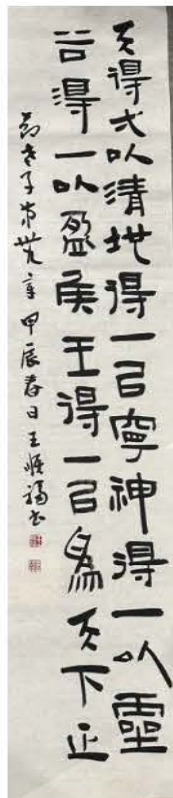 天得弌以清地得一㠯寧神得一以靈
谷得一以盈侯王得一㠯爲天下正
節老子第卅九章甲辰春日王順福書